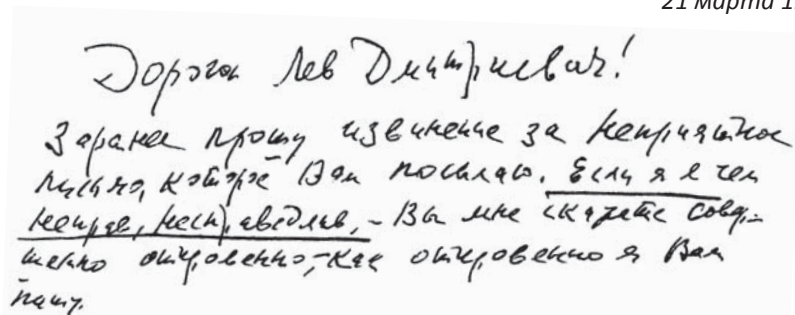 21 марта 1
Дорогой Лев Дмитриевич!
Заранее прошу извинение за неприятное
письмо, которое Вам посылаю. Если я в чем
неправ, несправедлив, – Вы мне скажете совер-
шенно откровенно, – как откровенно я Вам
пишу.